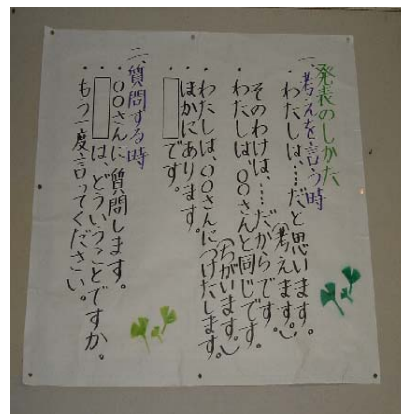 発表のしかた
一、考えを言う時
・わたしは、……だと思います。
(考えます。)
そのわけは、……だからです。
・わたしは、○○さんと同じです。
(ちがいます。)
・わたしは、○○さんにつけたします。
・ほかにあります。
□です。
二、質問する時
・○○さんに質問します。
□は、どういうことですか。
・もう一度言ってください。